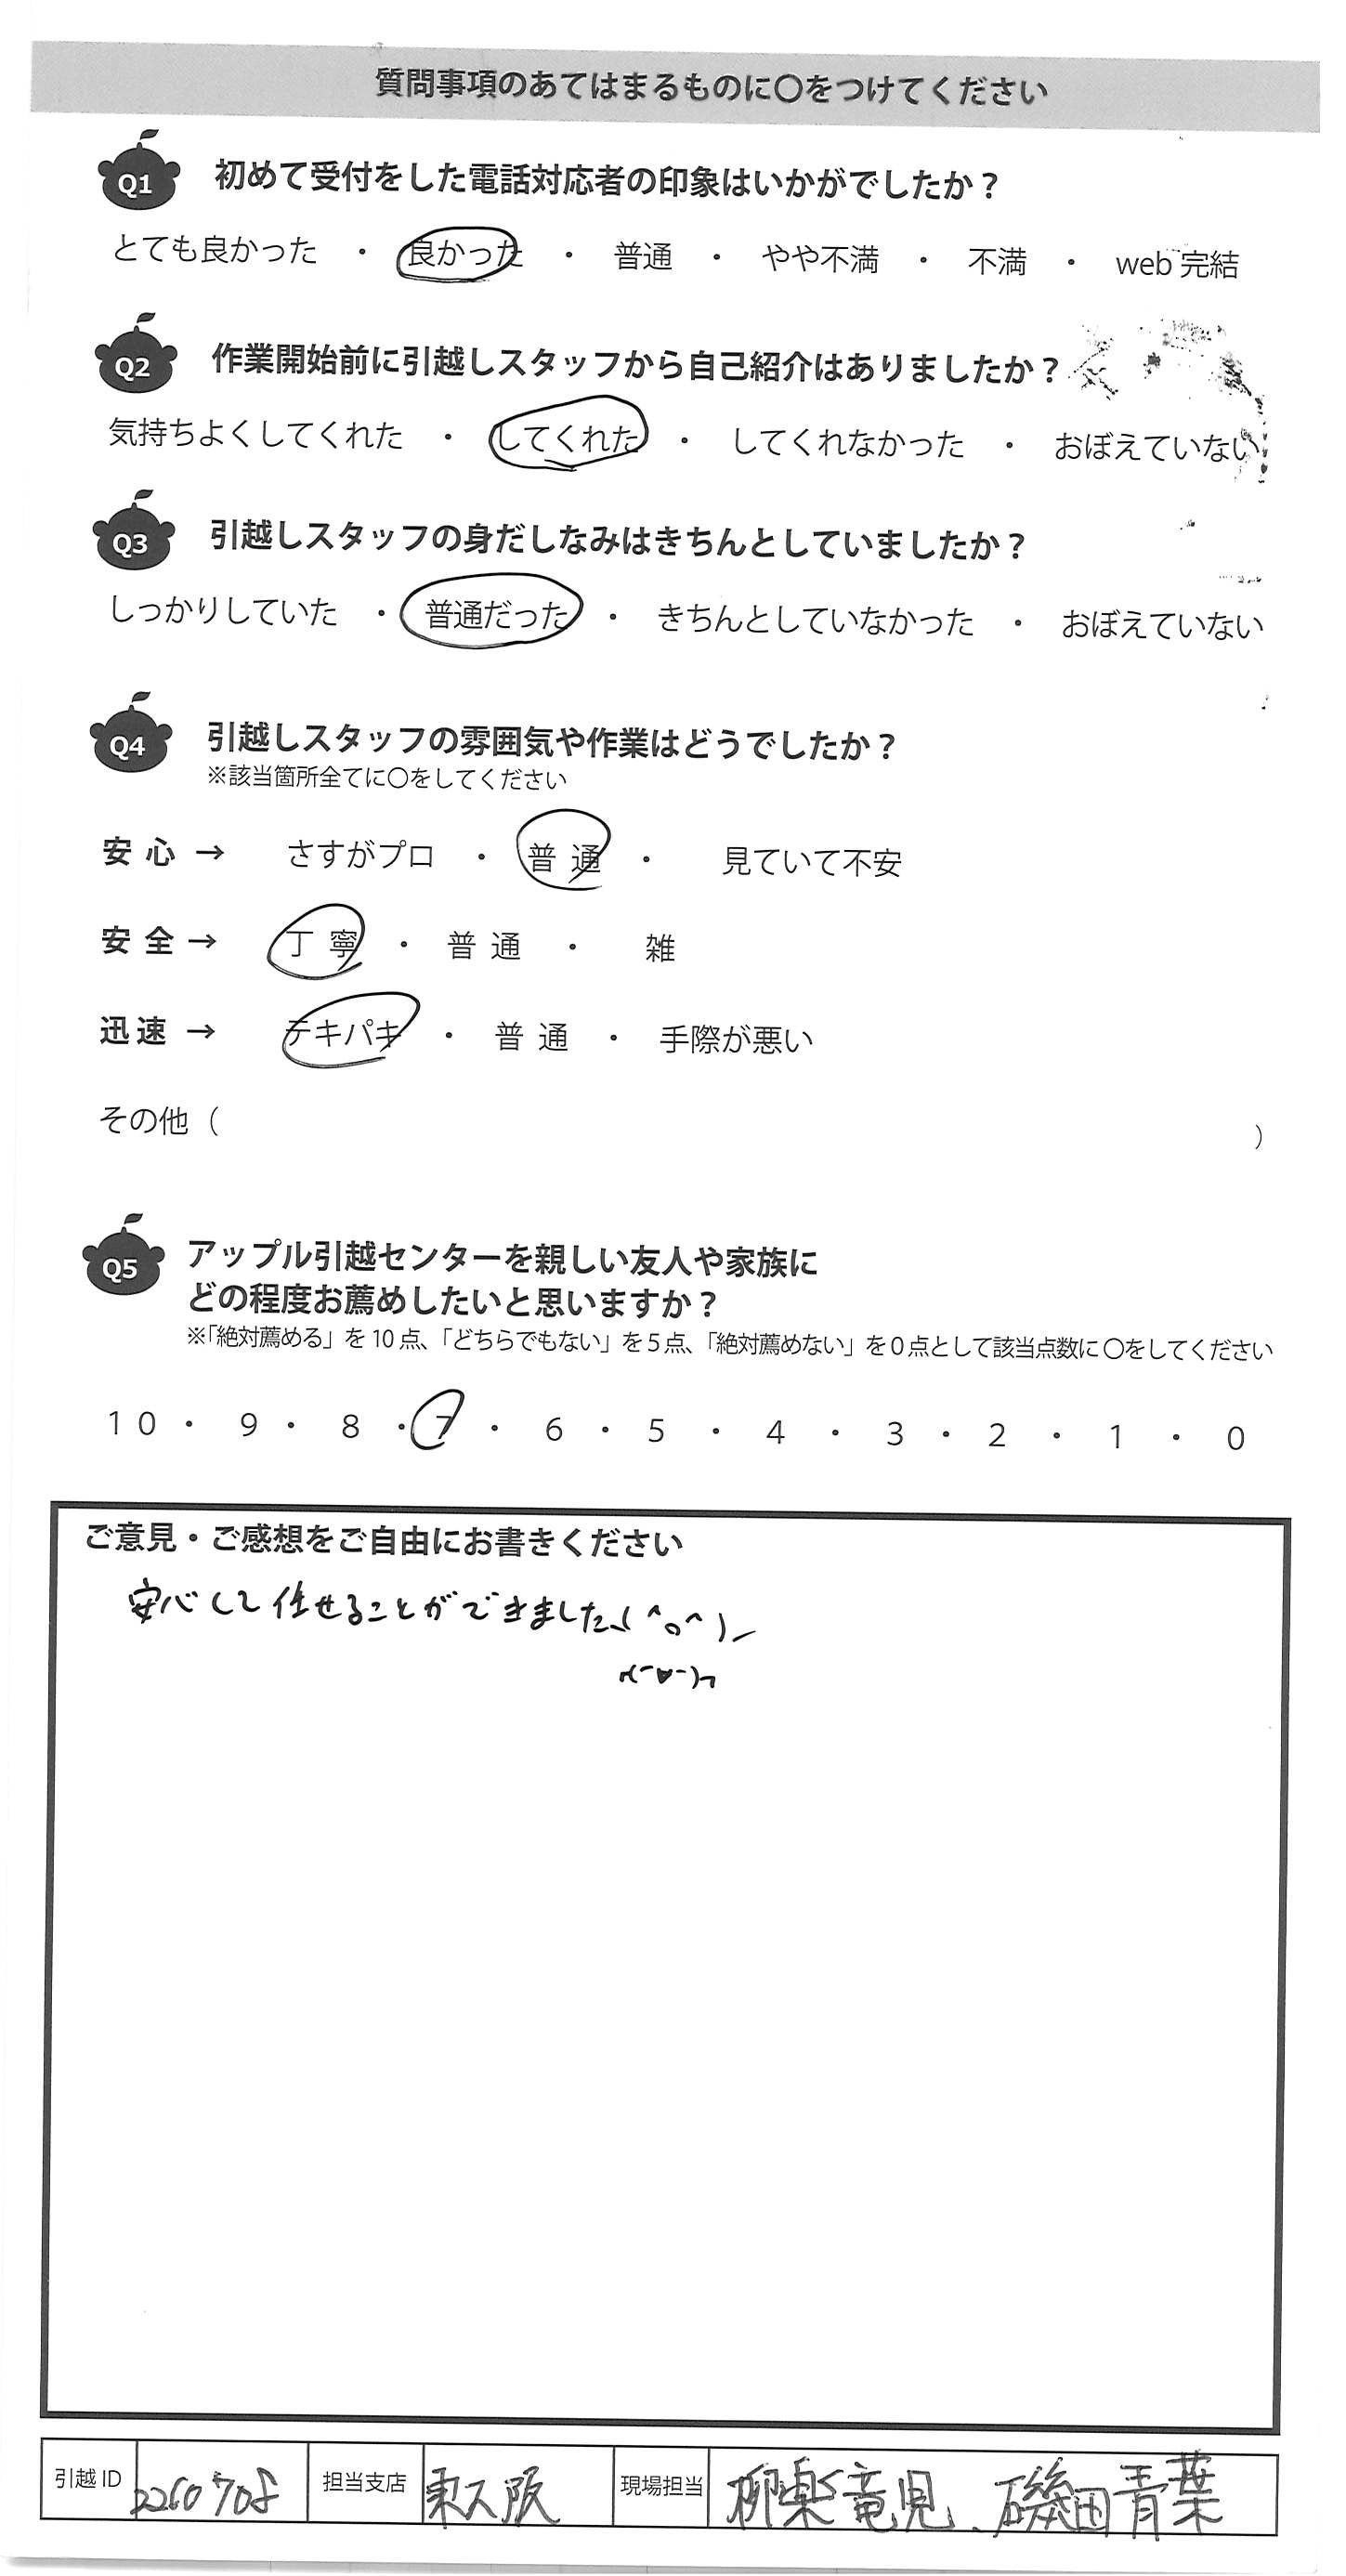 質問事項のあてはまるものに〇をつけてください
Q1 初めて受付をした電話対応者の印象はいかがでしたか？
とても良かった ・ 良かった ・ 普通 ・ やや不満 ・ 不満 ・ web 完結
Q2 作業開始前に引越しスタッフから自己紹介はありましたか？
気持ちよくしてくれた ・ してくれた ・ してくれなかった ・ おぼえていない
Q3 引越しスタッフの身だしなみはきちんとしていましたか？
しっかりしていた ・ 普通だった ・ きちんとしていなかった ・ おぼえていない
Q4 引越しスタッフの雰囲気や作業はどうでしたか？
※該当箇所全てに〇をしてください
安心 → さすがプロ ・ 普通 ・ 見ていて不安
安全 → 丁寧 ・ 普通 ・ 雑
迅速 → テキパキ ・ 普通 ・ 手際が悪い
その他（ ）
Q5 アップル引越センターを親しい友人や家族に
どの程度お薦めしたいと思いますか？
※「絶対薦める」を 10 点、「どちらでもない」を 5 点、「絶対薦めない」を 0 点として該当点数に〇をしてください
10 ・ 9 ・ 8 ・ 7 ・ 6 ・ 5 ・ 4 ・ 3 ・ 2 ・ 1 ・ 0
ご意見・ご感想をご自由にお書きください
安心して任せることができました(^o^)
引越 ID 2260708 担当支店 東大阪 現場担当 柳楽竜児、磯田青葉